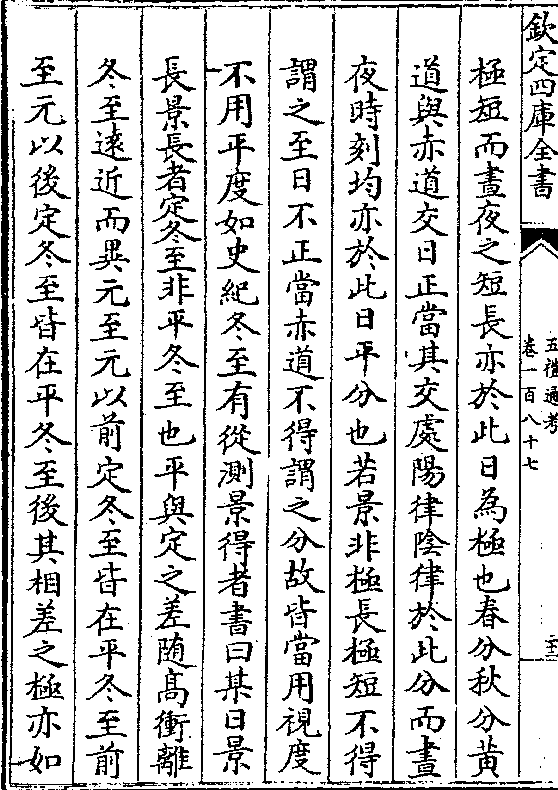 欽定四庫全書
五禮通考
卷一百八十七
極短而晝夜之短長亦於此日為極也春分秋分黄
道與赤道交日正當其交處陽律陰律於此分而晝
夜時刻均亦於此日平分也若景非極長極短不得
謂之至日不正當赤道不得謂之分故皆當用視度
不用平度如史紀冬至有從測景得者書曰某日景
長景長者定冬至非平冬至也平與定之差隨高衝離
冬至遠近而異元至元以前定冬至皆在平冬至前
至元以後定冬至皆在平冬至後其相差之極亦如